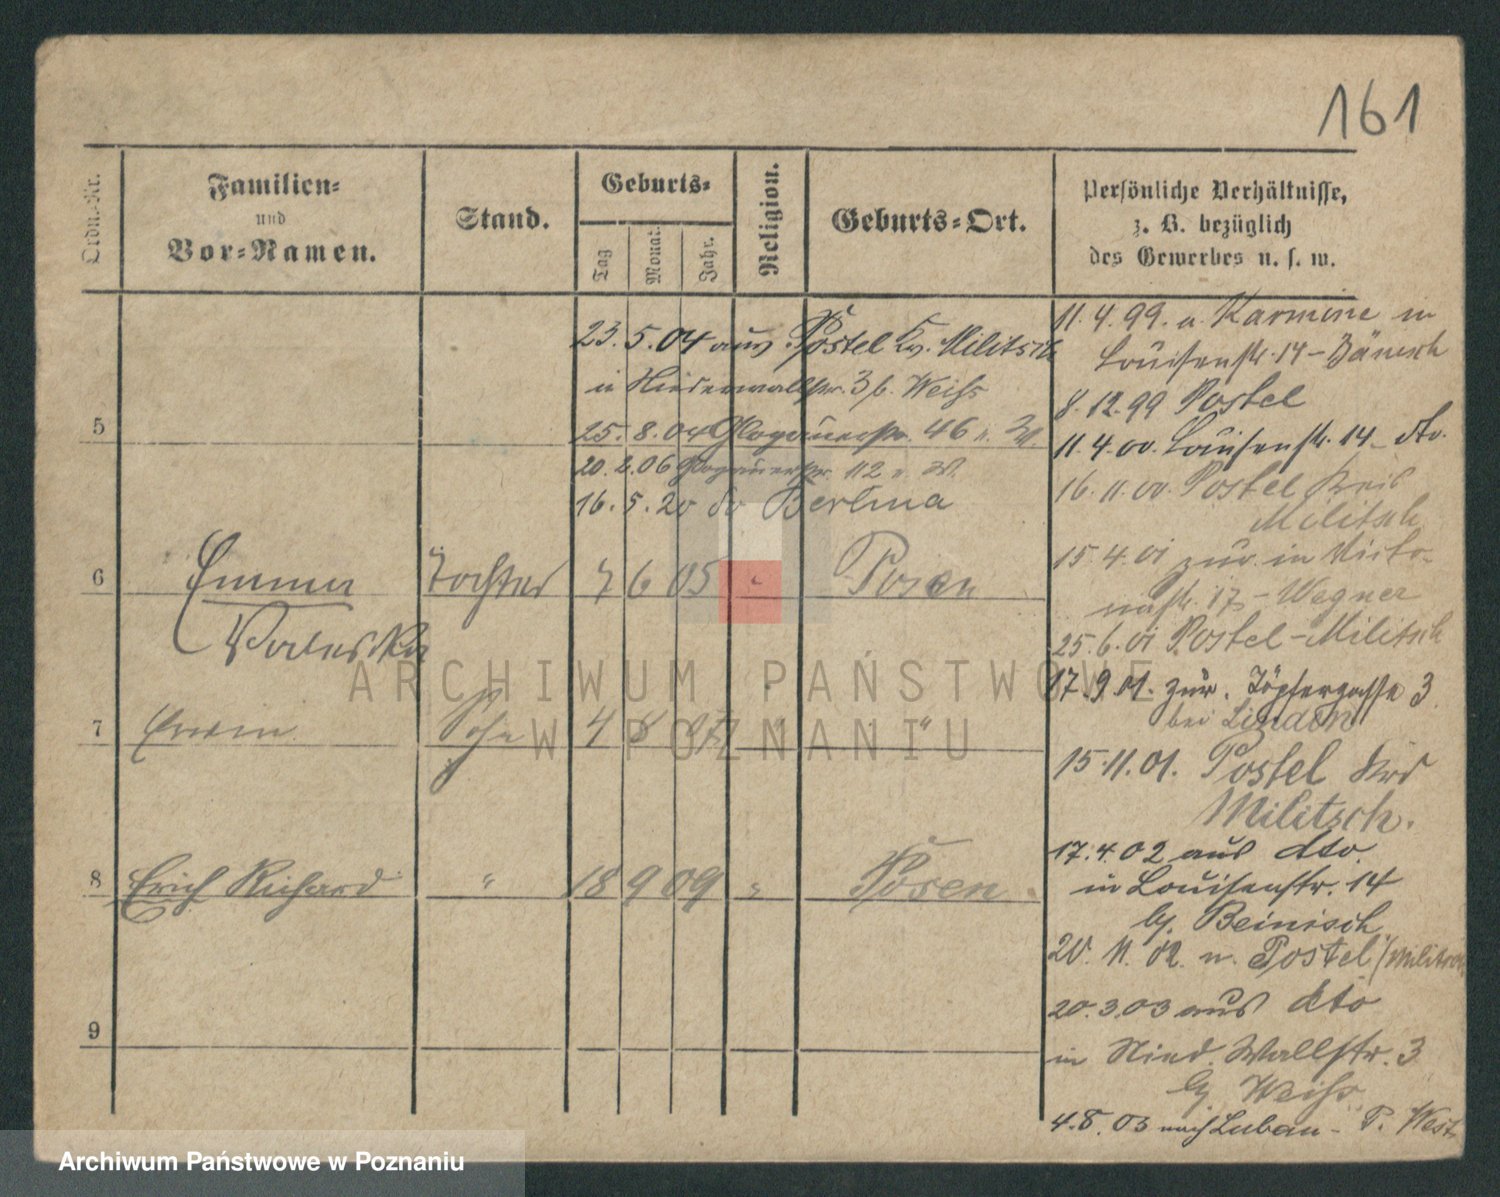 161
Ordn.-Nr.
Familien-
und
Vor-Namen.
Stand.
Geburts-
Tag
Monat.
Jahr.
Religion.
Geburts-Ort.
Persönliche Verhältnisse,
z. B. bezüglich
des Gewerbes u. s. w.
23. 5. 04 aus Postel Kr. Militsch
in Niederwallstr. 3 b. Weiss
5
25. 8. 04 Glogauerstr. 46
20. 2. 06 Glogauerstr. 112
16. 5. 20 do Berlina
6 Emma Tochter 7 6 05 " Posen
Valeska
7 Erwin Sohn 4 8 07 "
8 Erich Richard " 18 9 09 " Posen
9
11. 4. 99. a. Karmine in
Louisenstr. 14 - Bänisch
8. 12. 99 Postel
11. 4. 00. Louisenstr. 14 - dto.
16. 11. 00. Postel Kreis
Militsch
15. 4. 01 zur. in Victo-
riastr. 17 - Wegner
25. 6. 01 Postel - Militsch
17. 9. 01. zur. Töpfergasse 3.
bei Lindon
15. 11. 01. Postel Krs
Militsch.
17. 4. 02 aus dto
in Louisenstr. 14
bj. Beinisch
20. 11. 02. n. Postel / Militsch
20. 3. 03 aus dto
in Nied. Wallstr. 3
bj. Weiss
4. 8. 03 nach Luban - P. West
ARCHIWUM PAŃSTWOWE
W POZNANIU
Archiwum Państwowe w Poznaniu